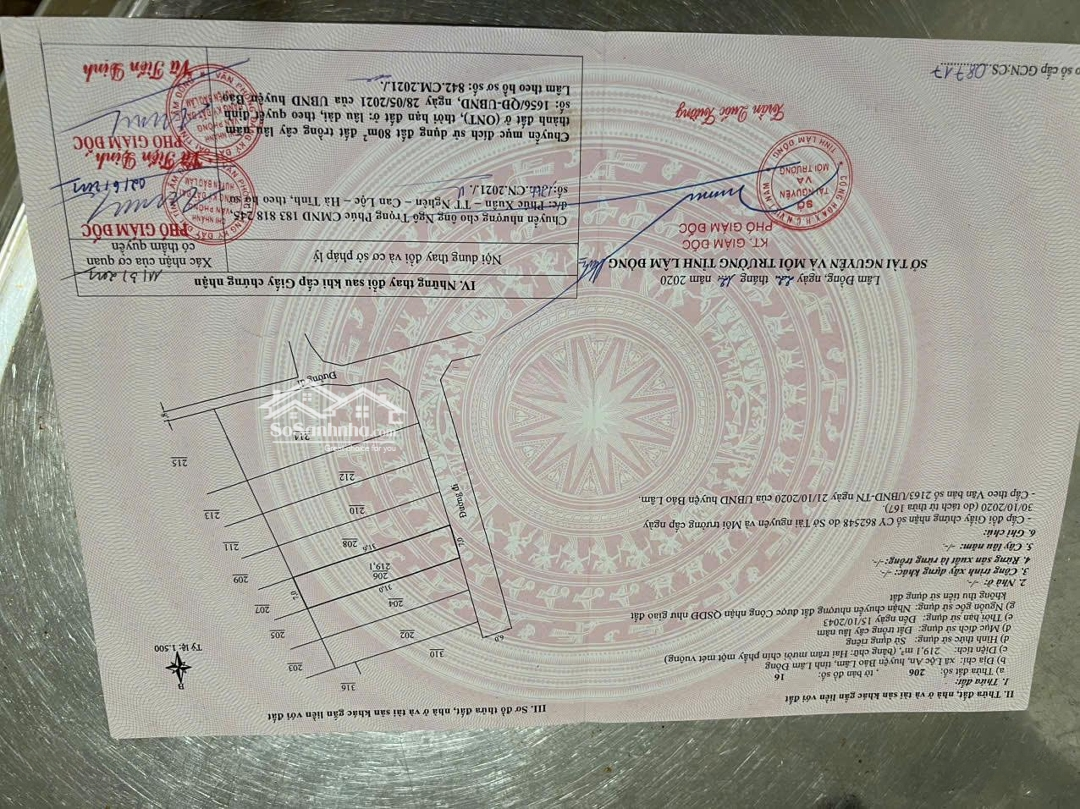 II. Thửa đất, nhà ở và tài sản khác gắn liền với đất
1. Thửa đất:
a) Thửa đất số: 206 , tờ bản đồ số: 16
b) Địa chỉ: xã Lộc An, huyện Bảo Lâm, tỉnh Lâm Đồng
c) Diện tích: 219,1 m², (bằng chữ: Hai trăm mười chín phẩy một mét vuông)
d) Hình thức sử dụng: Sử dụng riêng
đ) Mục đích sử dụng: Đất trồng cây lâu năm
e) Thời hạn sử dụng: Đến ngày 15/10/2043
g) Nguồn gốc sử dụng: Nhận chuyển nhượng đất được Công nhận QSDĐ như giao đất
không thu tiền sử dụng đất
2. Nhà ở: -/-
3. Công trình xây dựng khác: -/-
4. Rừng sản xuất là rừng trồng: -/-
5. Cây lâu năm: -/-
6. Ghi chú:
- Cấp đổi Giấy chứng nhận số CY 862548 do Sở Tài nguyên và Môi trường cấp ngày
30/10/2020 (do tách từ thửa 167)
- Cấp theo Văn bản số 2163/UBND-TN ngày 21/10/2020 của UBND huyện Bảo Lâm.
Lâm Đồng, ngày tháng năm 2020
SỞ TÀI NGUYÊN VÀ MÔI TRƯỜNG TỈNH LÂM ĐỒNG
KT. GIÁM ĐỐC
PHÓ GIÁM ĐỐC
CỘNG HÒA X.H.C.N VIỆT NAM
SỞ
TÀI NGUYÊN
VÀ
MÔI TRƯỜNG
TỈNH LÂM ĐỒNG
số cấp GCN:CS 08717
III. Sơ đồ thửa đất, nhà ở và tài sản khác gắn liền với đất
B
Tỷ lệ: 1:500
316
310
203
202
6,0
205
204
207
31,0
206
219,1
7,0
7,0
209
31,6
208
211
210
Đường đi
213
212
215
214
Đường đi
SoSanhnha.com
smart choice for you
IV. Những thay đổi sau khi cấp Giấy chứng nhận
Nội dung thay đổi và cơ sở pháp lý
Xác nhận của cơ quan
có thẩm quyền
Chuyển nhượng cho ông Ngô Trọng Phúc CMND 183 818 245
đ/c: Phúc Xuân – TT – Nghèn – Can Lộc – Hà Tĩnh, theo hồ sơ
số: .CN.2021./.
PHÓ GIÁM ĐỐC
Vũ Tiến Định
Chuyển mục đích sử dụng đất 80m² đất trồng cây lâu năm
thành đất ở (ONT), thời hạn đất ở: lâu dài, theo quyết định
số: 1656/QĐ-UBND, ngày 28/05/2021 của UBND huyện Bảo
Lâm theo hồ sơ số: 842.CM.2021./.
02/6/2021
PHÓ GIÁM ĐỐC
Vũ Tiến Định